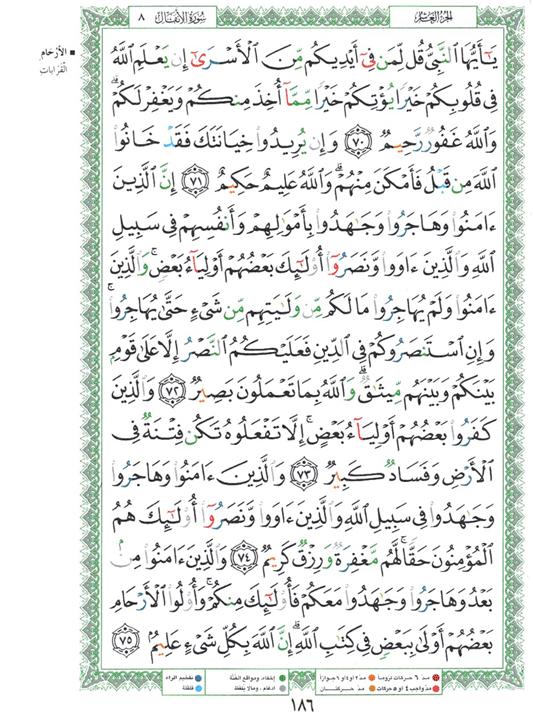 الجزء العاشر
سورة الأنفال ٨
يَٰٓأَيُّهَا ٱلنَّبِىُّ قُل لِّمَن فِىٓ أَيْدِيكُم مِّنَ ٱلْأَسْرَىٰٓ إِن يَعْلَمِ ٱللَّهُ
فِى قُلُوبِكُمْ خَيْرًا يُؤْتِكُمْ خَيْرًا مِّمَّآ أُخِذَ مِنكُمْ وَيَغْفِرْ لَكُمْ ۗ
وَٱللَّهُ غَفُورٌ رَّحِيمٌ ٧٠ وَإِن يُرِيدُوا۟ خِيَانَتَكَ فَقَدْ خَانُوا۟
ٱللَّهَ مِن قَبْلُ فَأَمْكَنَ مِنْهُمْ ۗ وَٱللَّهُ عَلِيمٌ حَكِيمٌ ٧١ إِنَّ ٱلَّذِينَ
ءَامَنُوا۟ وَهَاجَرُوا۟ وَجَٰهَدُوا۟ بِأَمْوَٰلِهِمْ وَأَنفُسِهِمْ فِى سَبِيلِ
ٱللَّهِ وَٱلَّذِينَ ءَاوَوا۟ وَّنَصَرُوٓا۟ أُو۟لَٰٓئِكَ بَعْضُهُمْ أَوْلِيَآءُ بَعْضٍ ۚ وَٱلَّذِينَ
ءَامَنُوا۟ وَلَمْ يُهَاجِرُوا۟ مَا لَكُم مِّن وَلَٰيَتِهِم مِّن شَىْءٍ حَتَّىٰ يُهَاجِرُوا۟ ۚ
وَإِنِ ٱسْتَنصَرُوكُمْ فِى ٱلدِّينِ فَعَلَيْكُمُ ٱلنَّصْرُ إِلَّا عَلَىٰ قَوْمٍۭ
بَيْنَكُمْ وَبَيْنَهُم مِّيثَٰقٌ ۗ وَٱللَّهُ بِمَا تَعْمَلُونَ بَصِيرٌ ٧٢ وَٱلَّذِينَ
كَفَرُوا۟ بَعْضُهُمْ أَوْلِيَآءُ بَعْضٍ ۚ إِلَّا تَفْعَلُوهُ تَكُن فِتْنَةٌ فِى
ٱلْأَرْضِ وَفَسَادٌ كَبِيرٌ ٧٣ وَٱلَّذِينَ ءَامَنُوا۟ وَهَاجَرُوا۟
وَجَٰهَدُوا۟ فِى سَبِيلِ ٱللَّهِ وَٱلَّذِينَ ءَاوَوا۟ وَّنَصَرُوٓا۟ أُو۟لَٰٓئِكَ هُمُ
ٱلْمُؤْمِنُونَ حَقًّا ۚ لَّهُم مَّغْفِرَةٌ وَرِزْقٌ كَرِيمٌ ٧٤ وَٱلَّذِينَ ءَامَنُوا۟ مِنۢ
بَعْدُ وَهَاجَرُوا۟ وَجَٰهَدُوا۟ مَعَكُمْ فَأُو۟لَٰٓئِكَ مِنكُمْ ۚ وَأُو۟لُوا۟ ٱلْأَرْحَامِ
بَعْضُهُمْ أَوْلَىٰ بِبَعْضٍ فِى كِتَٰبِ ٱللَّهِ ۗ إِنَّ ٱللَّهَ بِكُلِّ شَىْءٍ عَلِيمٌۢ ٧٥
■ الأرْحام
القَرَابات
مدّ ٦ حركات لزوماً
مدّ ٢ أو ٤ أو ٦ جوازاً
إخفاء، ومواقع الغُنَّة
تفخيم الراء
مدّ واجب ٤ أو ٥ حركات
مدّ حركتان
ادغام، ومالا يُلفَظ
قلقلة
١٨٦